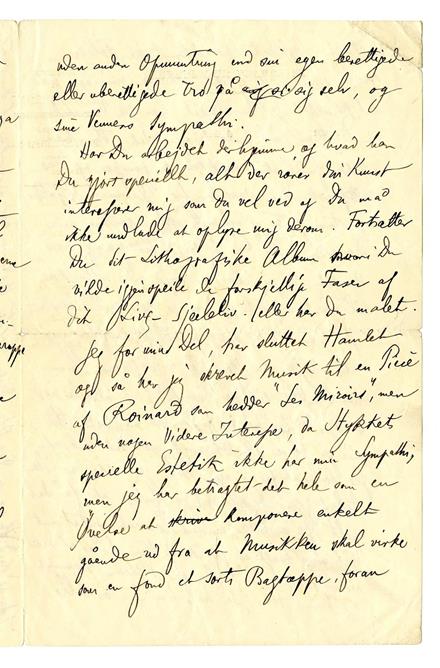 uden anden Opmuntring end sin egen berettigede
eller uberettigede Tro på sig selv, og
sine Venners Sympathi.
Har Du arbejdet derhjemme og hvad har
Du gjort speciellt, alt der rører din Kunst
interesserer mig som du vel ved og Du må
ikke undlade at oplyse mig derom. Fortsætter
Du dit Lithografiske Album hvori Du
vilde igjenspeile de forskjellige Faser af
dit Livs Sjæleliv. eller har du malet.
Jeg for min Del, har sluttet Hamlet
og så har jeg skrevet Musik til en Pièce
af Roinard som hedder "Les Miroirs", men
uden nogen Videre Interesse, da Stykkets
specielle Estetik ikke har min Sympathi,
men jeg har betragtet det hele som en
Øvelse at skrive komponere enkelt
gående ud fra at Musikken skal virke
som en fond et sorts Bagtæppe, foran